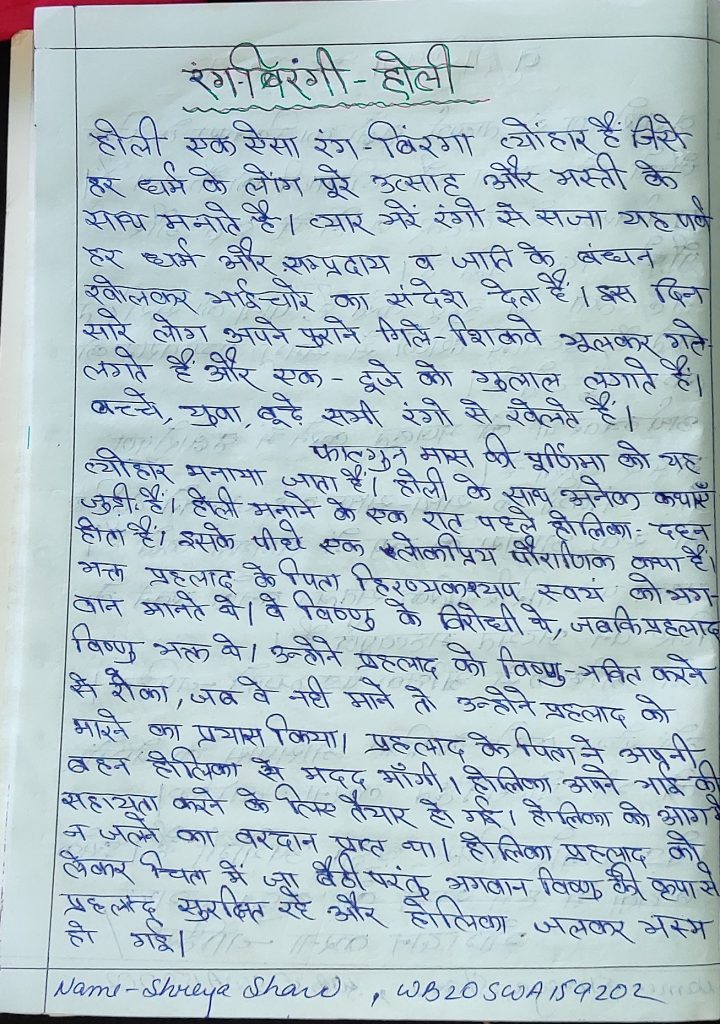 रंग-बिरंगी - होली
होली एक ऐसा रंग-बिंरगा त्योंहार है जिसे
हर धर्म के लोंग पूरे उत्साह और मस्ती के
साथ मनाते है। प्यार भरें रंगो से सजा यह पर्व
हर धर्म और सम्प्रदाय व जाति के बंधन
खोलकर भाईचारे का संदेश देता हैं। इस दिन
सारे लोग अपने पुराने गिले-शिकवे भूलकर गले
लगते हैं और एक-दूजे को गुलाल लगाते हैं।
बच्चे, युवा, बूढ़े सभी रंगो से खेलते हैं।
फाल्गुन मास की पूर्णिमा को यह
त्योहार मनाया जाता हैं। होली के साथ अनेक कथाएँ
जुड़ी हैं। होली मनाने के एक रात पहले होलिका दहन
होता हैं। इसके पीछे एक लोकप्रिय पौराणिक कथा हैं।
भक्त प्रहलाद के पिता हिरण्यकश्यप स्वयं को भग-
वान मानते थे। वे विष्णु के विरोधी थे, जबकि प्रहलाद
विष्णु भक्त थे। उन्होने प्रहलाद को विष्णु-भक्ति करने
से रोका, जब वे नही माने तो उन्होने प्रहलाद को
मारने का प्रयास किया। प्रहलाद के पिता ने अपनी
बहन होलिका से मदद माँगी। होलिका अपने भाई की
सहायता करने के लिए तैयार हो गई। होलिका को आग मे
न जलने का वरदान प्राप्त था। होलिका प्रहलाद को
लेकर चिता मे जा बैठी परंतु भगवान विष्णु की कृपा से
प्रहलाद सुरक्षित रहे और होलिका जलकर भस्म
हो गई।
Name-Shreya Shaw , WB20SWA159202